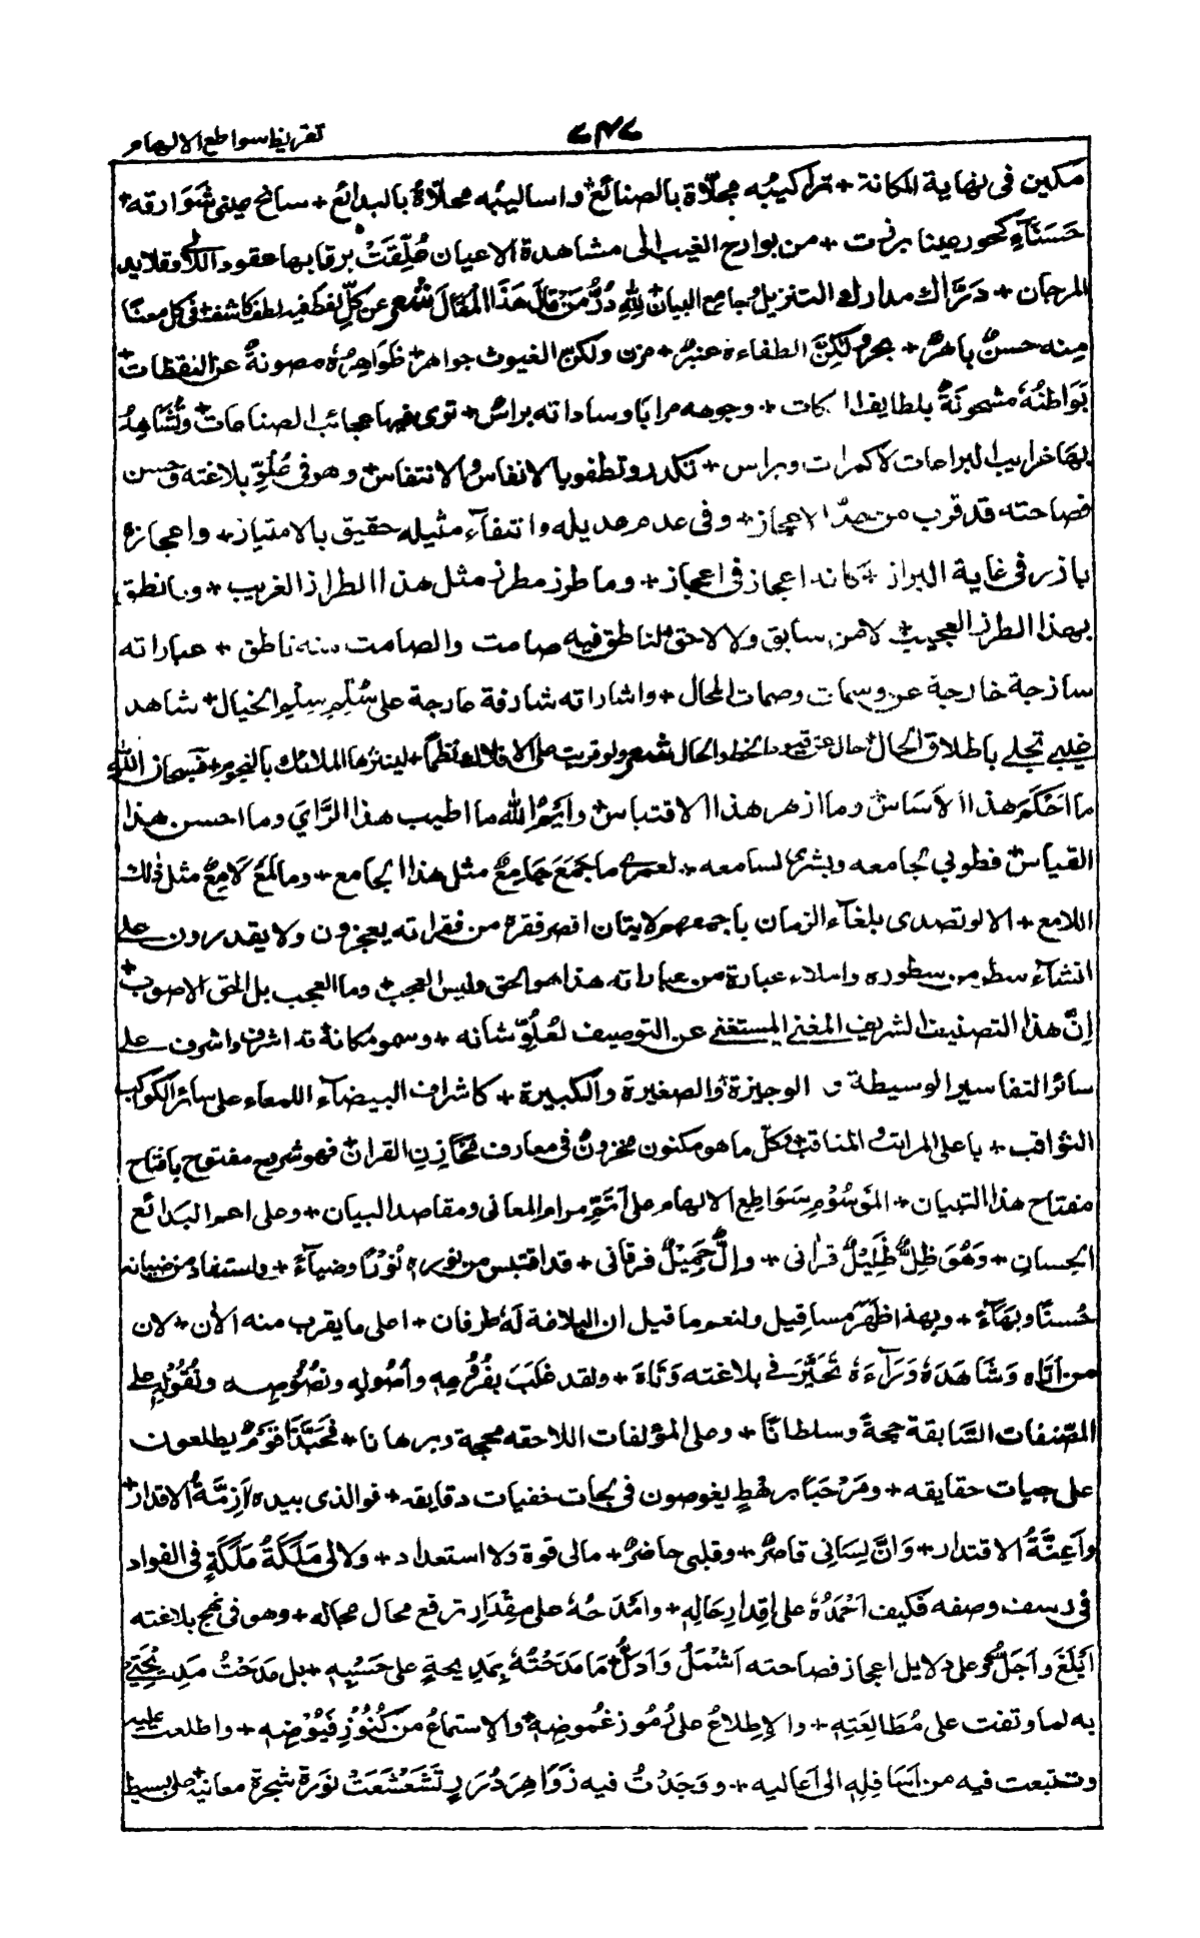 تقريظ سواطع الالهام
٧٤٧
مكين فى نهاية المكانة + تراكيبُه مُحلّاة بالصنائع + واساليبُه محلّاةٌ بالبدائع + سانح صفى شَوَارقه +
حَسَنَآءِ كحور عِينا برزت + من بوارح الغيب الى مشاهدة الاعيان عُلِّقَتْ برقابها عقود اللآلى وقلايد
المرجان + دَرَّاك مدارك التنزيل وجامع البيان + لِلهِ دُرُّ مَنْ قَالَ هَذَا الْمَقَالَ شعر عن كلّ لفظ فيه لطف كاشف + فى كل معنًا
مِنه حسنٌ باهرٌ + بحرٌ لٰكِنَّ الطفاءة عنبرٌ + مزن ولكن الغيوث جواهر + ظَوَاهِرُهُ مصونةٌ عن النقظات +
بَوَاطنُهُ مشحونَةٌ بلطايف النكات + وجوهه مرايا وساداته براس + ترى فيها عجائب الصناعات + وتُشَاهِدُ
بها غرايب البراعات لاكمرات وبراس + تكدر وتطفو بالانفاس والانتفاس + وهو فى عُلُوّ بلاغته وحسن
فصاحته قد قرب من حدّ الاعجاز + وفى عدم عديله وانتفآء مثيله حقيق بالامتياز + واعجازه
بازر فى غاية البراز + كانه اعجاز فى اعجاز + وما طرز مطرز مثل هذا الطراز الغريب + وما نطق
بهذا الطرز العجيب + لا من سابق ولا لاحق + الناطق فيه صامت والصامت منه ناطق + عباراته
سازجة خارجة عن وسمات وصمات المحال + واشاراته شارفة عارجة على سُلَّم سليم الخيال + شاهد
غيبى تجلى باطلاق الحال + حال عن قيود الخط والخال شعر ولو قربت على الافلاك نظماً + لينثرها الملائك بالنجوم + فسبحان الله
ما احْكَمَ هذا الاَسَاسْ وما ازهر هذا الاقتباس وايْمُ الله ما اطيب هذا الرَّاي وما احسن هذا
القياس + فطوبى لجامعه وبشرى لسامعه + لعمرى ما جَمَعَ جَامِعٌ مثل هذا الجامع + وما لمَعَ لَامِعٌ مثل ذٰلك
اللامع + الا لو تصدى بلغآء الزمان باجمعهم لايتان اقصر فقرة من فقراته يعجزون ولا يقدرون على
انشآء سطر من سطوره واملاء عبارة من عباراته هذا هو الحق وليس العجب + وما العجب بل الحق الاصوب +
اِنَّ هذا التصنيف الشريف المغنى المستغنى عن التوصيف لعُلُوّ شانه + وسمو مكانة قد اشرف واشرف على
سائر التفاسير الوسيطة و الوجيزة والصغيرة والكبيرة + كاشراف البيضآء اللمعاء على سائر الكواكب
الثواقب + باعلى المراتب والمناقب + وكلّ ما هو مكنون مخزون فى معارف مَخَازِنِ القران + فهو شريح مفتوح بافتاح
مفتاح هذا التبيان + المَوسُوْم سَوَاطِع الالهام على اَتَمِّ مرام المعانى ومقاصد البيان + وعلى اعم البَدائع
الحِسانِ + وَهُوَ ظِلٌّ ظَلِيْلٌ قرانى + وإلٌّ جَمِيْلٌ فرقانى + قد اقتبس من نوره نُوْرًا وضيآءً + واستفاد من ضيائه
حُسنًا وبَهَآءً + وبهذا ظَهَرَ مسا قيل ولنعم ما قيل ان البلاغة لَهُ طرفان + اعلى ما يقرب منه الاٰن + لان
من اَتَاه وَشَاهَدَهُ وَرَآءَهُ تَحَيَّرَ فى بلاغته وَتَاهَ + ولقد غَلَبَ بفُرُعِهٖ واُصُولِهٖ ونُصُوصِه ونُقُوْلِهٖ على
المصّنفات السَّابقة حجةً وسلطانًا + وعلى المؤلفات اللاحقه محجمة وبرهانا + فَحَبَّذَا قَوْمٌ يطلعون
على جيات حقايقه + ومَرْحَبَا برهْطٍ يغوصون فى لجات خفيات دقايقه + فوالذى بيده اَزِمَّةُ الاقدار +
واَعِنَّةُ الاقتدار + وَانَّ لِسَانِى قاصرٌ + وقلبى حاضرٌ + مالى قوة ولا استعداد + ولالى مَلَكَةٌ مَلَكَةٍ فى الفواد
فى رسف وصفه فكيف اَحْمَدُهُ على اِقدارِ حَالِهٖ + وامْدَحُهُ على مِقْدَارِ ترفع محال محاله + وهو فى نهج بلاغته
اَبْلَغَ واَجَلُّ وعلى دلايل اعجاز فصاحته اَشْمَلُ وَاَدَلُّ + مَا مَدَحْتُهُ بِمَدِيحةٍ على حَسَبِهٖ + بل مَدَحْتُ مَدِيْحَتِى
به لما وقفت على مُطَالعَتِهٖ + والاِطِلاعُ علىٰ رُموز غُموضِهٖ + والاِستماعُ من كُنُوْزِ فُيُوْضِهٖ + واطلعت عليه
وتتبعت فيه من اَسَافِلِهٖ الى اَعاليه + ووَجَدْتُ فيه زَوَاهِرَ دُرَرٍ تَشَعْشَعَتْ نورة شجرة معانيه + على بسيط